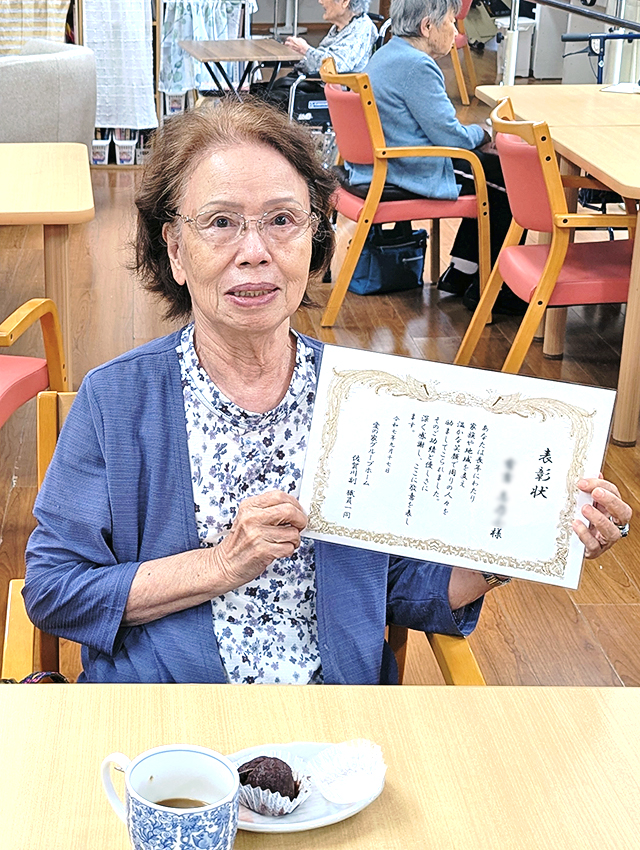 表彰状
様
あなたは長年にわたり
家族や地域を愛し
温かな笑顔で周りの人々を
励ましてこられました。
そのご功績と優しさに
深く感謝し、ここに敬意を表し
ます。
令和七年九月十七日
愛の家グループホーム
佐賀川副 職員一同